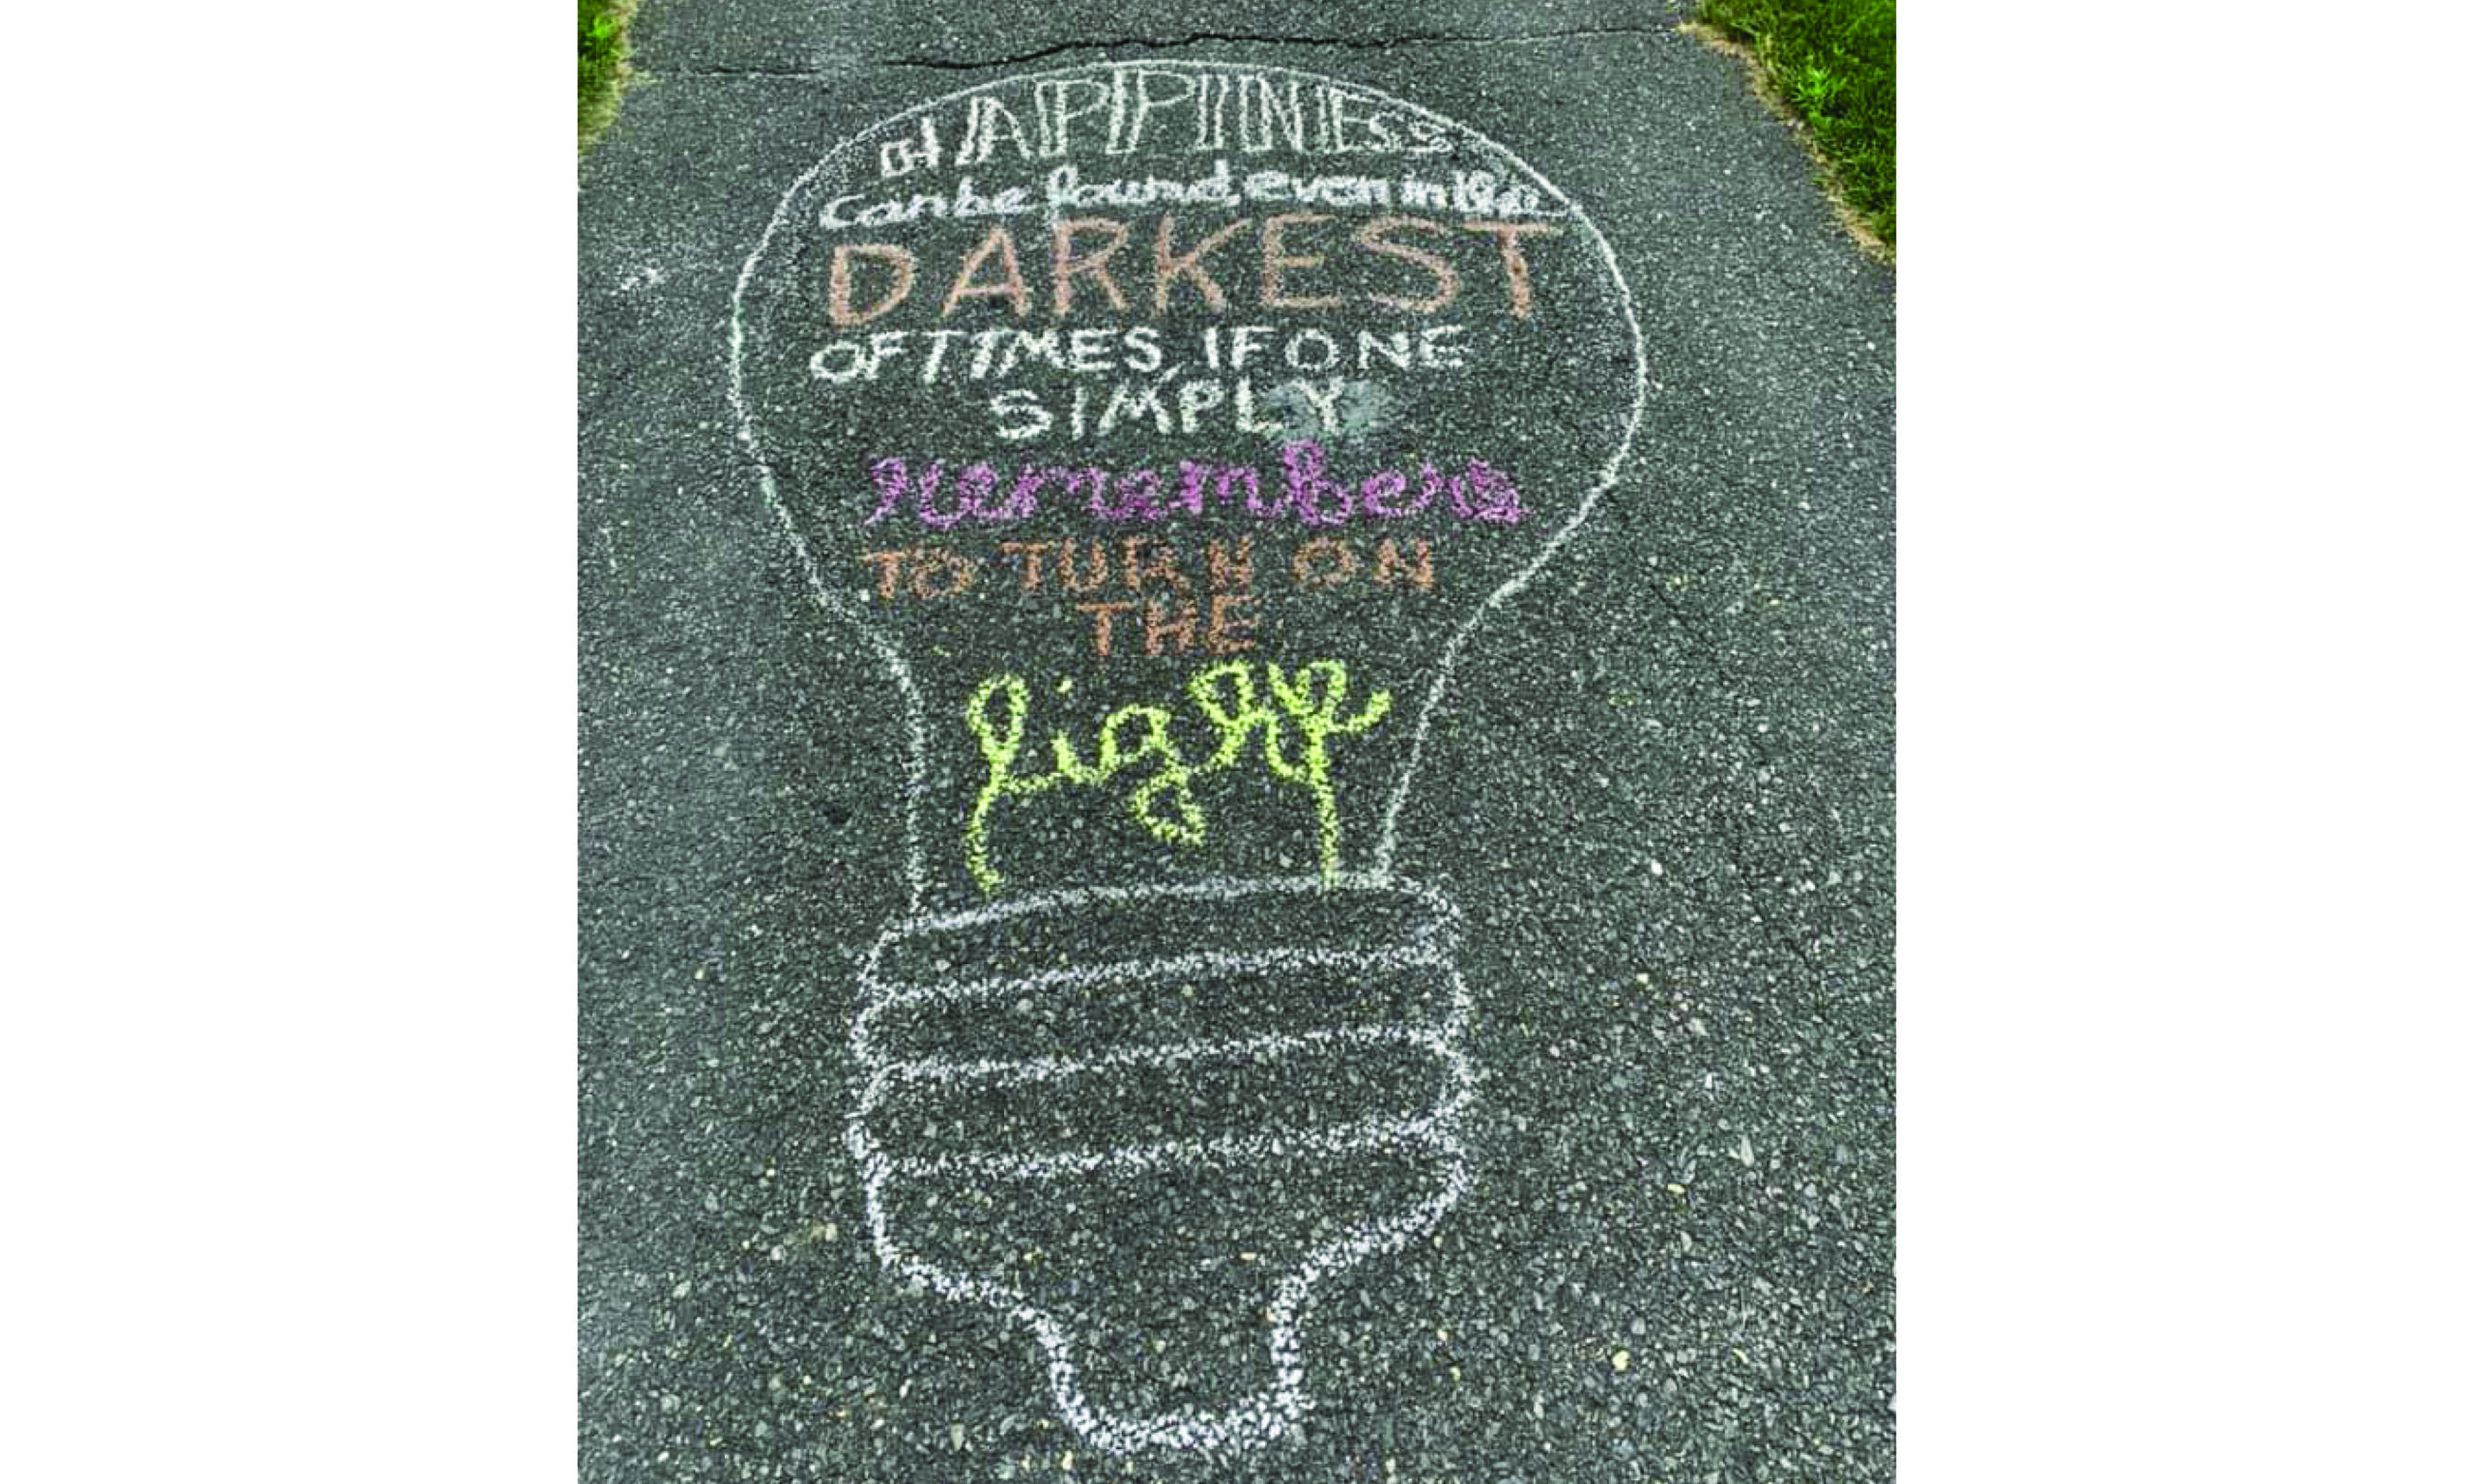 HAPPINESS
Can be found, even in the
DARKEST
OF TIMES, IF ONE
SIMPLY
remembers
TO TURN ON
THE
light